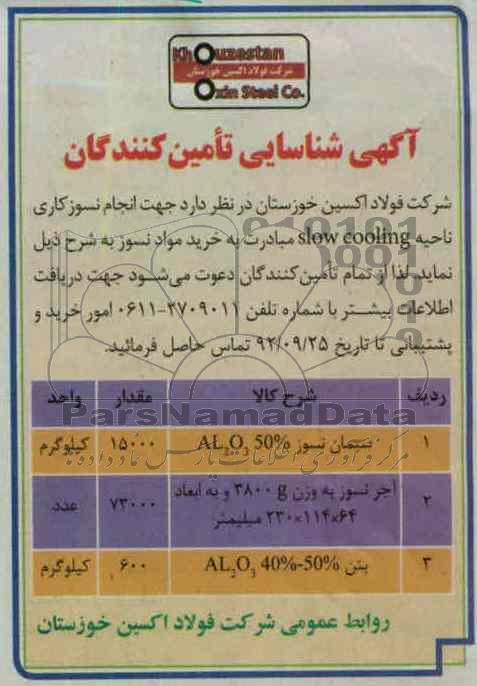 Khouzestan
شرکت فولاد اکسین خوزستان
Oxin Steel Co.
آگهی شناسایی تأمین کنندگان
شرکت فولاد اکسین خوزستان در نظر دارد جهت انجام نسوزکاری
ناحیه slow cooling مبادرت به خرید مواد نسوز به شرح ذیل
نماید. لذا از تمام تأمین کنندگان دعوت می شود جهت دریافت
اطلاعات بیشتر با شماره تلفن ۲۷۰۹۰۱۱-۰۶۱۱ امور خرید و
پشتیبانی تا تاریخ ۹۲/۰۹/۲۵ تماس حاصل فرمائید.
ردیف شرح کالا مقدار واحد
ParsNamadData
۱ سیمان نسوز AL₂O₃ 50% ۱۵۰۰۰ کیلوگرم
مرکز فرآوری اطلاعات پارس نماد داده ها
۲ آجر نسوز به وزن ۳۸۰۰ g و به ابعاد ۷۳۰۰۰ عدد
۲۳۰×۱۱۴×۶۴ میلیمتر
۳ بتن AL₂O₃ 40%-50% ۶۰۰ کیلوگرم
روابط عمومی شرکت فولاد اکسین خوزستان